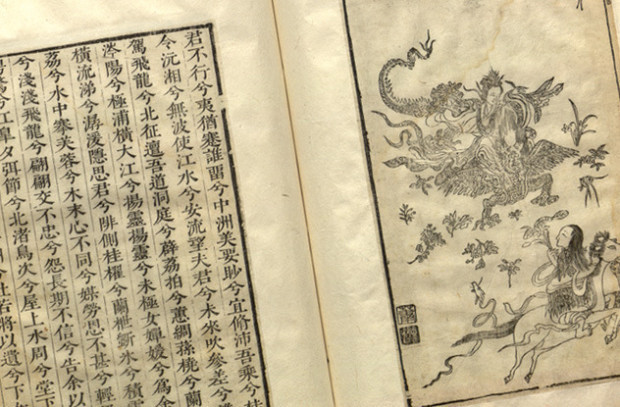 君不行兮夷猶蹇誰畱兮中洲美要眇兮宜脩沛吾乘兮桂
令沅湘兮無波使江水兮安流望夫君兮未來吹參差兮
駕飛龍兮北征邅吾道兮洞庭薜荔拍兮蕙綢蓀橈兮蘭
涔陽兮極浦橫大江兮揚靈揚靈兮未極女嬋媛兮為余
橫流涕兮潺湲隱思君兮陫側桂櫂兮蘭枻斲冰兮積雪
荔兮水中搴芙蓉兮木末心不同兮媒勞恩不甚兮輕
兮淺淺飛龍兮翩翩交不忠兮怨長期不信兮告余以
兮江皋夕弭節兮北渚鳥次兮屋上水周兮堂下
杜若將以遺兮下